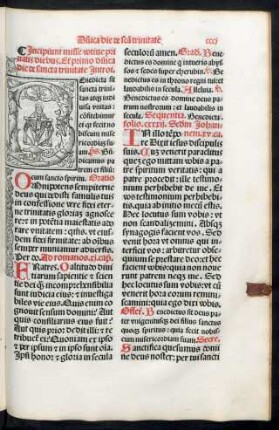 Dñica die de sctã trinitate
Incipiunt misse votiue
Et primo dñica
die de sancta trinitate Introi.
Benedicta sit
sancta trini-
tas atqz indi
uisa vnitas
cõfitebimur
ei qr fecit no
biscum
Cum sancto spiritu. Oratio
Omnipotens sempiterne
deus qui dedisti famulis tuis
in confessione vere fidei eter
ne trinitatis gloriã agnosce
re et in potẽtia maiestatis ado
rare vnitatem
dem fidei firmitate ab oibus
semper muniamur aduersis.
Per Ad romanos.xi.cap.
FRatres. O altitudo diui
tiarum sapientie et scien
tie dei incomprehensibilia
sunt iudicia eius et inuestiga
biles vie eius. Quis enim co
gnouit sensum domini: Aut
quis consiliarius eius fuit:
Aut quis prior dedit illi: et re
tribuet ei: Quoniam ex ipso
et per ipsum et in ipso sunt oĩa
Ipsi honor et gloria in secula
seculorũ amen. Grad. Bene
dictus es domine qui intueris aby
sos et sedes super cherubin.
nedictus es in throno regni tui et
laudabilis in secula. Alleluia.
Benedictus es domine deus patrum
nostrorum et laudabilis in
secula. Sequentia.
Johan
IN illo tẽpore
Dixit iesus discipulis
suis. Cum venerit paraclitus
quem ego mittam vobis a pa
tre spiritum veritatis: qui a
patre procedit: ille testimoni
um perhibebit de me. Et
vos testimonium perhibebi
tis quia ab initio mecũ estis.
Hec locutus sum vobis: vt
non scandalizemini. Absqz
synagogis facient vos. Sed
venit hora vt omnis qui in
terficit vos: arbitretur obse
quium se prestare deo et hec
facient vobis quia non noue
runt patrem neqz me. Sed
hec locutus sum vobis: vt cũ
venerit hora eorum remini
scamini: quia ego dixi vobis.
Offer. Benedictus sit deus pa
ter vnigenitusqz dei filius sanctus
quoqz spiritus: quia fecit nobis
cum misericordiam suam. Secre.
Sanctifica quesumus domi
ne deus noster: per tui sancti